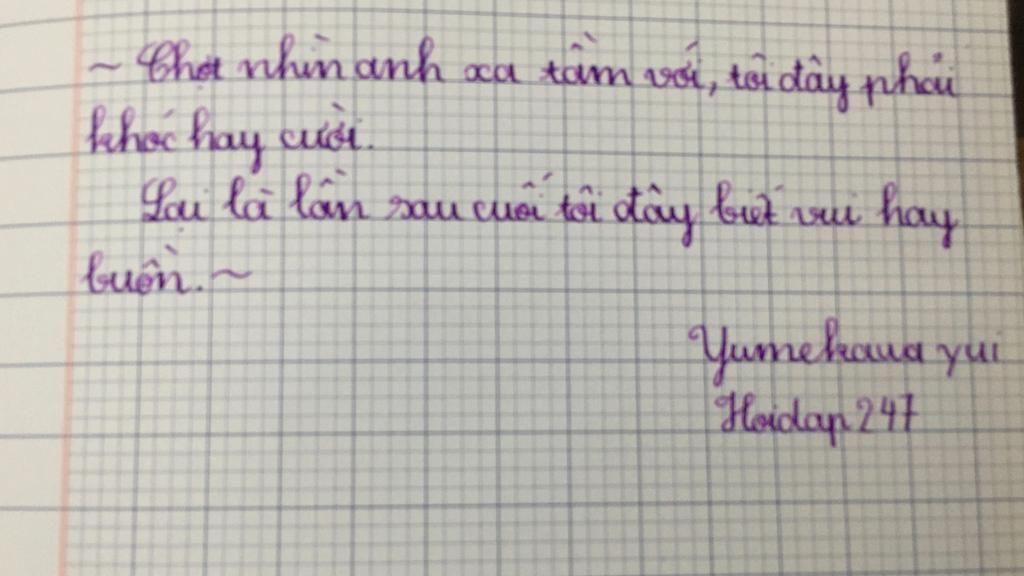 ~ Chợt nhìn anh xa tầm với, tôi đây phải
khóc hay cười.
Lại là lần sau cuối tôi đây biết vui hay
buồn. ~
Yumekawa yui
Hoidap247